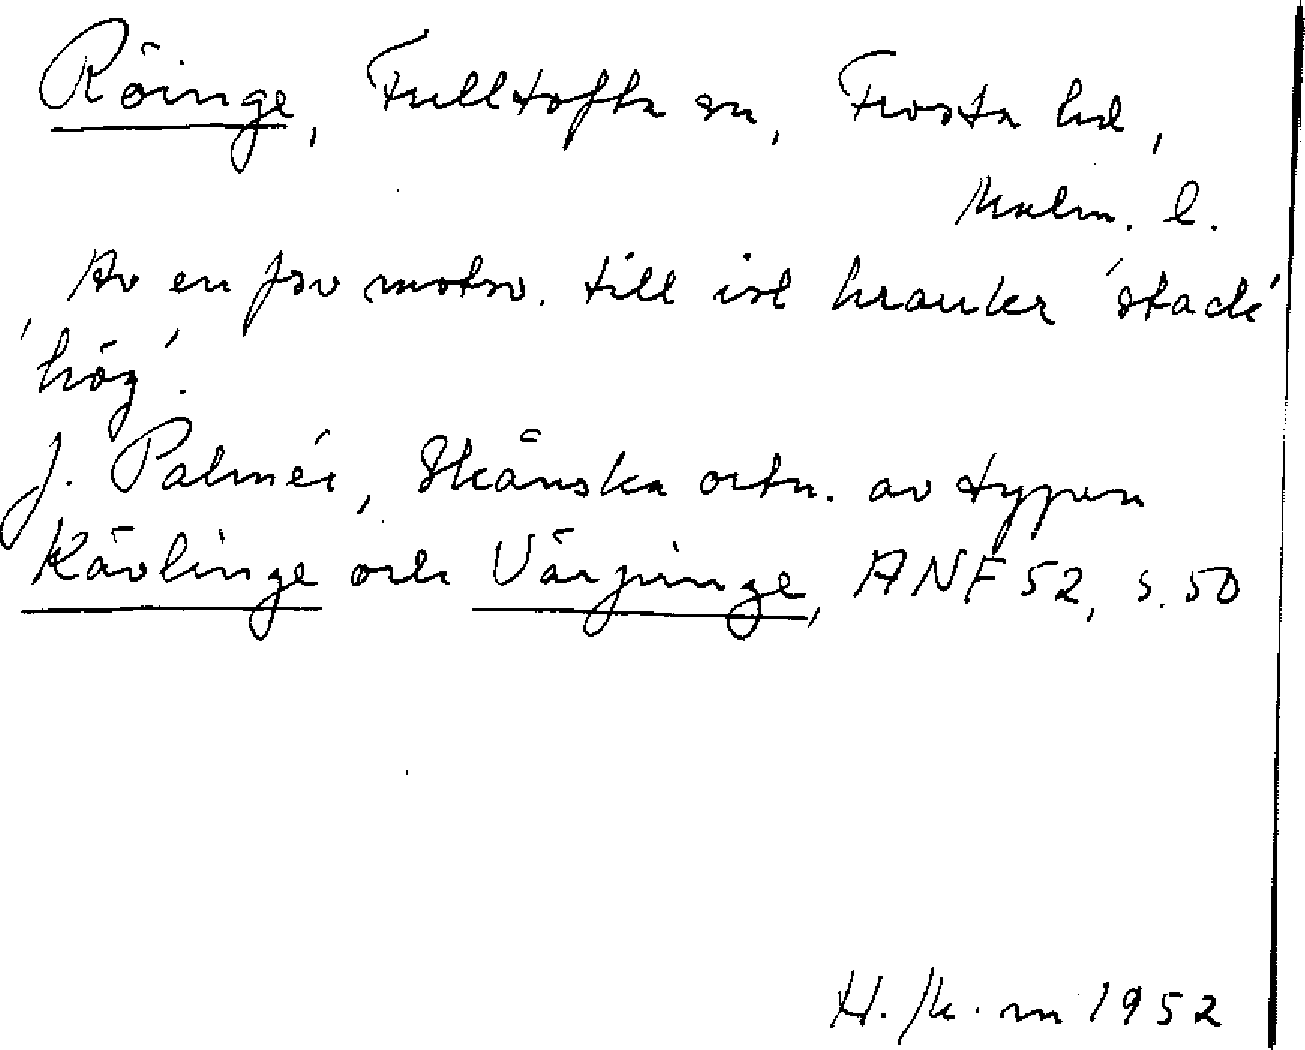 Röinge, Fulltofta sn, Frosta hd,
Malm. l.
Av en fsv motsv. till isl hraukr 'stack'
'hög'.
J. Palmér, Skånska ortn. av typen
Kävlinge och Värpinge, ANF 52, s. 50
H. M. m 1952